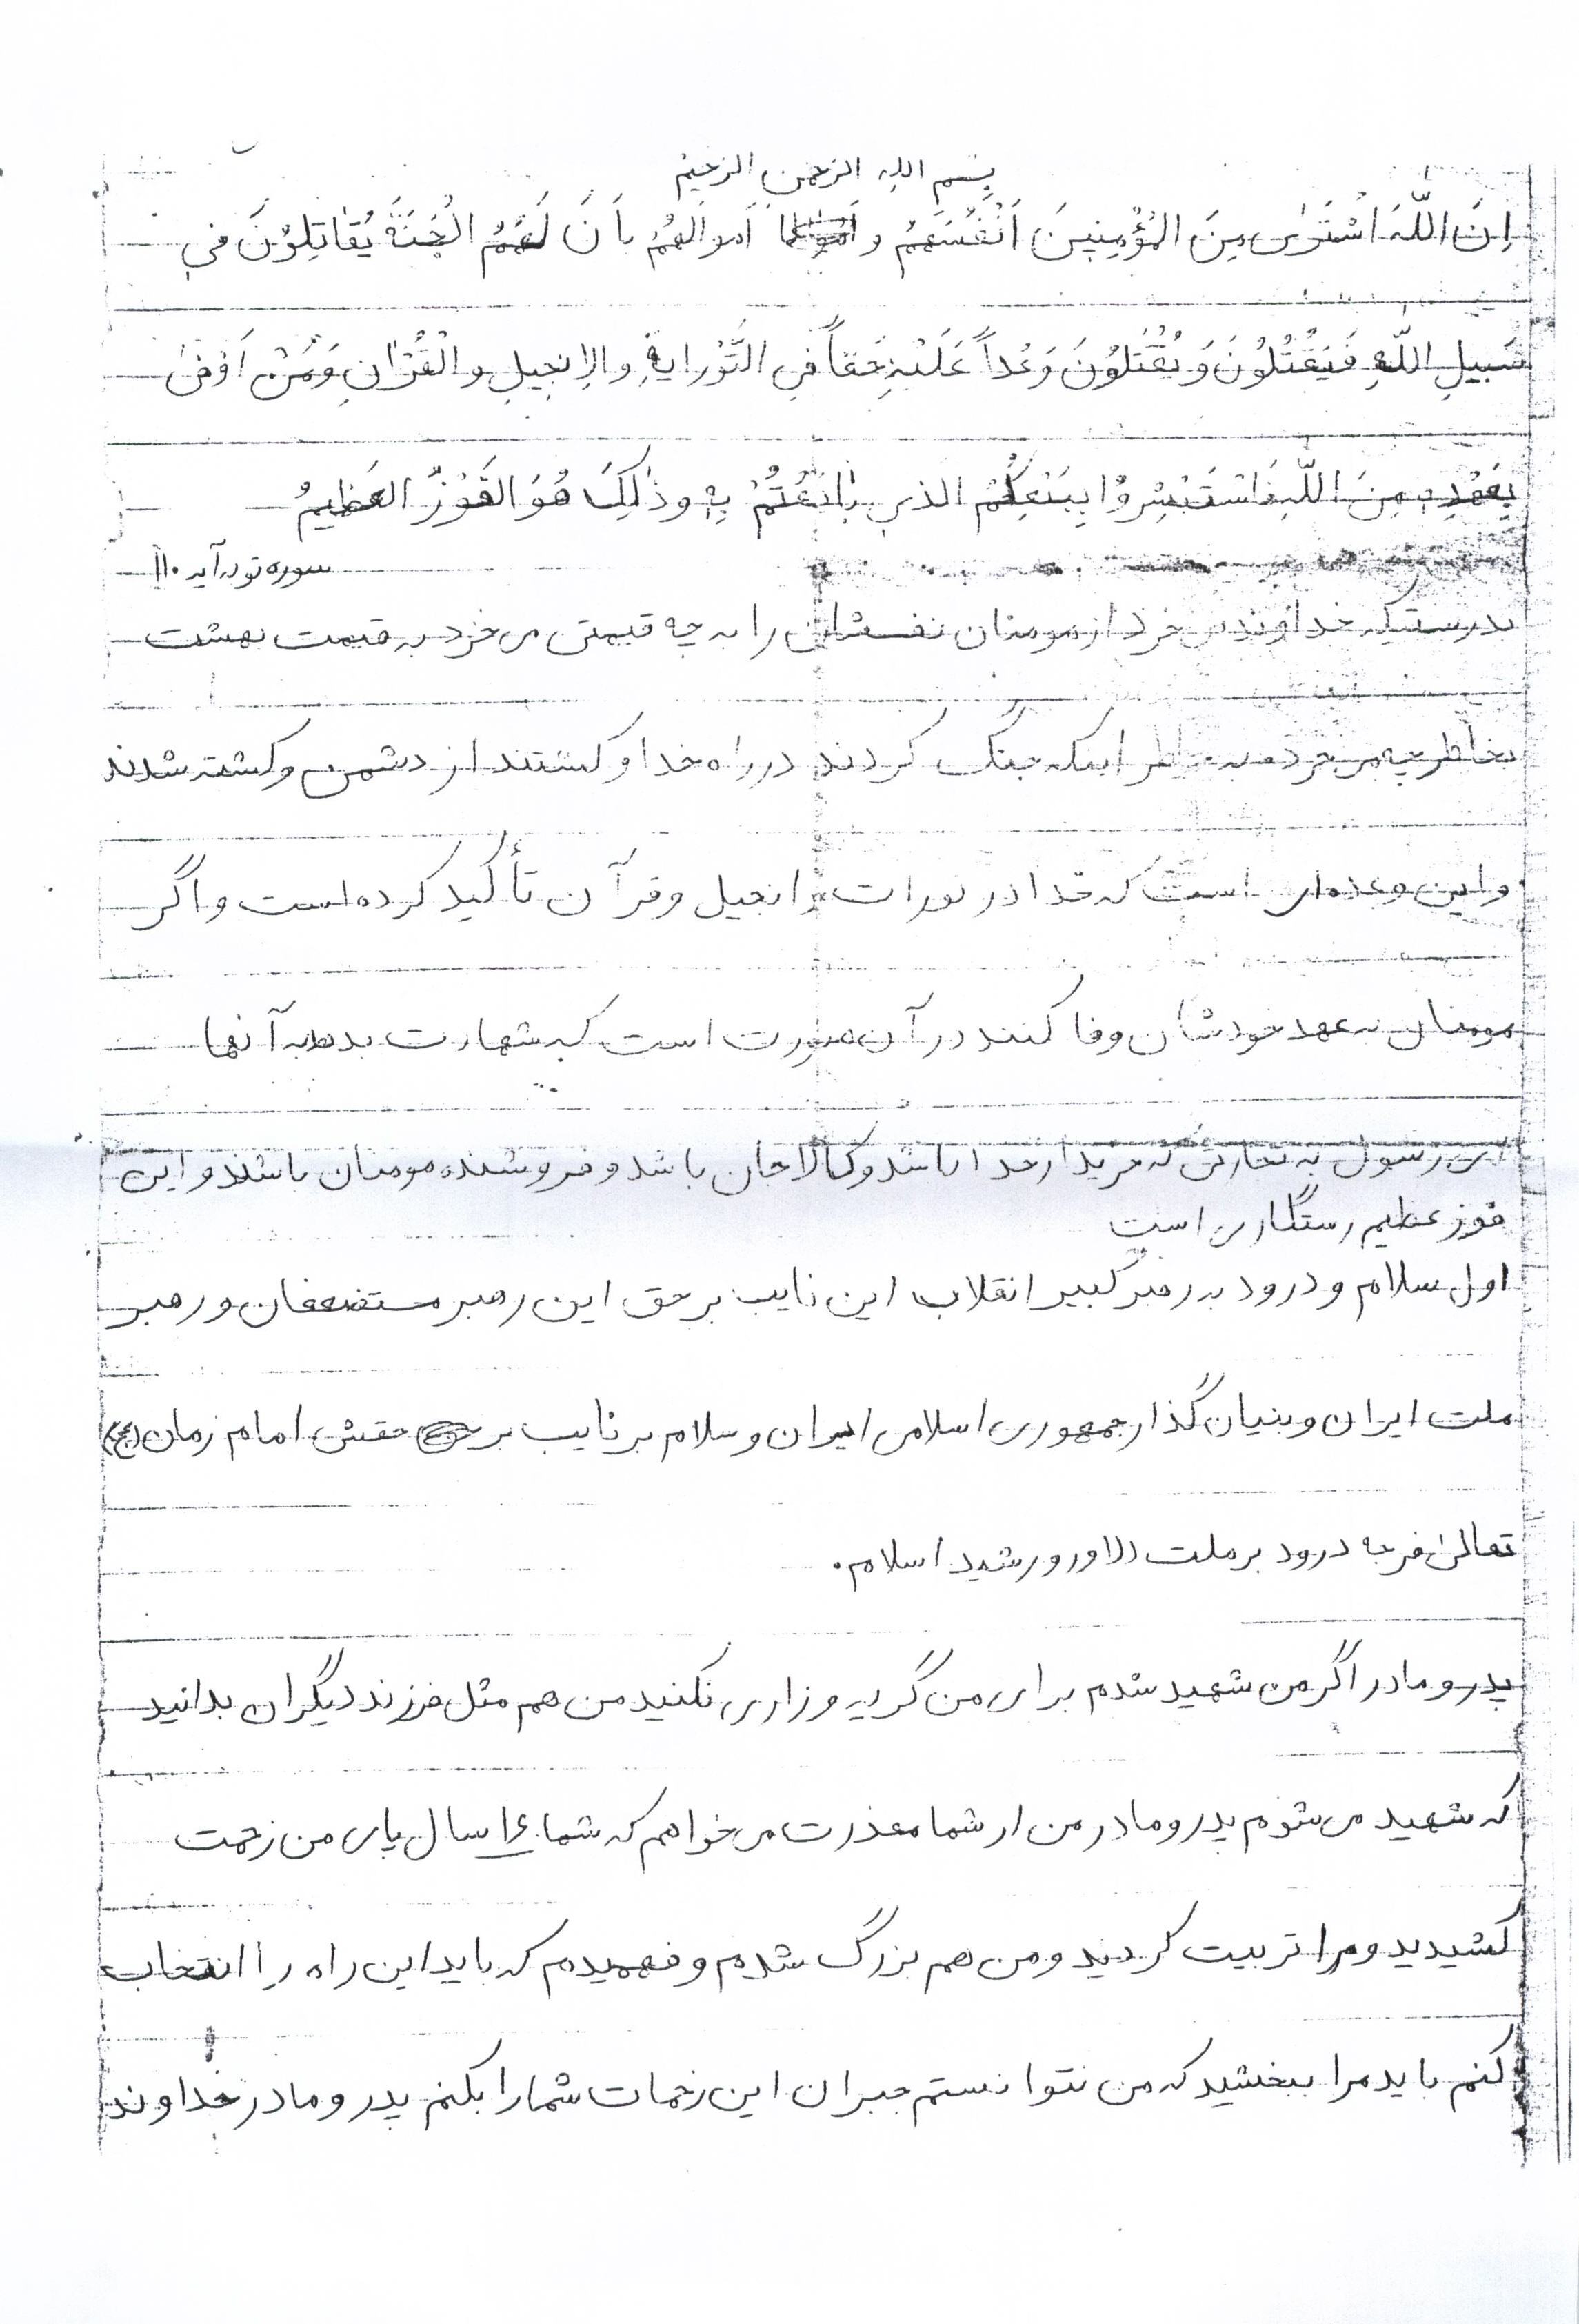 بِسْمِ اللهِ الرَّحْمنِ الرَّحیمْ
اِنَّ اللّهَ اشْتَرىٰ مِنَ الْمُؤْمِنِینَ اَنْفُسَهُمْ و اَموالَهُمْ بِاَنَّ لَهُمُ الْجَنَةَ یُقٰاتِلوُنَ فی
سَبیلِ اللّهِ فَیَقْتُلُونَ وَ یُقْتَلُونَ وَعْداً عَلَیْهِ حَقاً فیِ التَّوْرایةِ والاِنجیلِ و الْقُرٰانِ وَ مَنْ اَوْفىٰ
بِعَهْدِهِ مِنَ اللّهِ فَاسْتَبْشِروُا بِبَیْعِکُمْ الذی بٰایَعْتُمْ بِهِ وذٰلِکَ هُوَ الفَوْزُ العَظیمُ
سوره توبه آیه ۱۱۰
بدرستیکه خداوند می خرد از مومنان نفسشان را به چه قیمتی می خرد به قیمت بهشت
بخاطر چه می خرد به خاطر اینکه جنگ کردند در راه خدا و کشتند از دشمن و کشته شدند
و این وعده‌ای است که خدا در تورات و انجیل و قرآن تأکید کرده است و اگر
مومنان به عهد خودشان وفا کنند در آن صورت است که شهادت بده به آنها
ای رسول به تجارتی که خریدار خدا باشد و کالا جان باشد و فروشنده مومنان باشند و این
فوز عظیم رستگاری است
اول سلام و درود به رهبر کبیر انقلاب این نایب بر حق این رهبر مستضعفان و رهبر
ملت ایران و بنیان گذار جمهوری اسلامی ایران و سلام بر نایب بر حقش امام زمان (عج)
تعالیٰ فرجه درود بر ملت دلاور و رشید اسلام.
پدر و مادر اگر من شهید شدم برای من گریه و زاری نکنید من هم مثل فرزند دیگران بدانید
که شهید می شوم پدر و مادر من از شما معذرت می خواهم که شما ۱۶ سال پای من زحمت
کشیدید و مرا تربیت کردید و من هم بزرگ شدم و فهمیدم که باید این راه را انتخاب
کنم باید مرا ببخشید که من نتوانستم جبران این زحمات شما را بکنم پدر و مادر خداوند